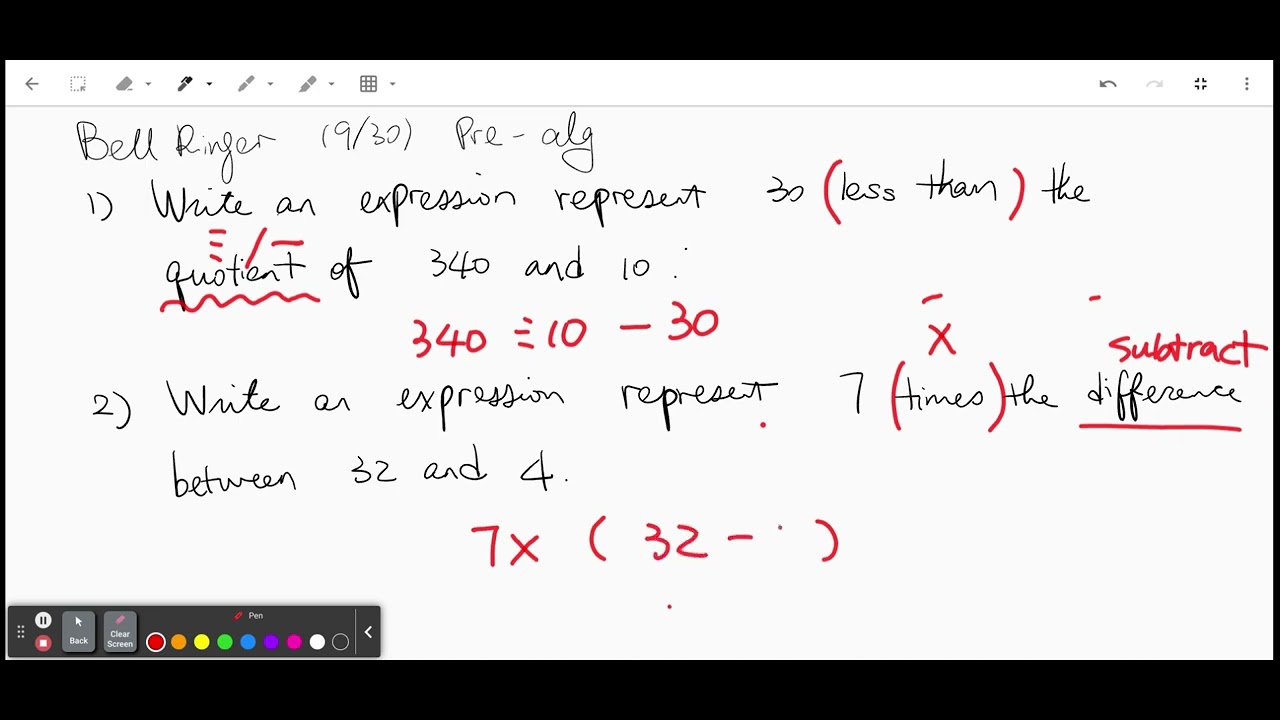 Bell Ringer (9/30) Pre-alg
1) Write an expression represent 30 (less than) the
÷ / –
quotient of 340 and 10 .
340 ÷ 10 – 30
x
subtract
2) Write an expression represent 7 (times) the difference
between 32 and 4.
7x ( 32 – )
Pen
Back
Clear
Screen